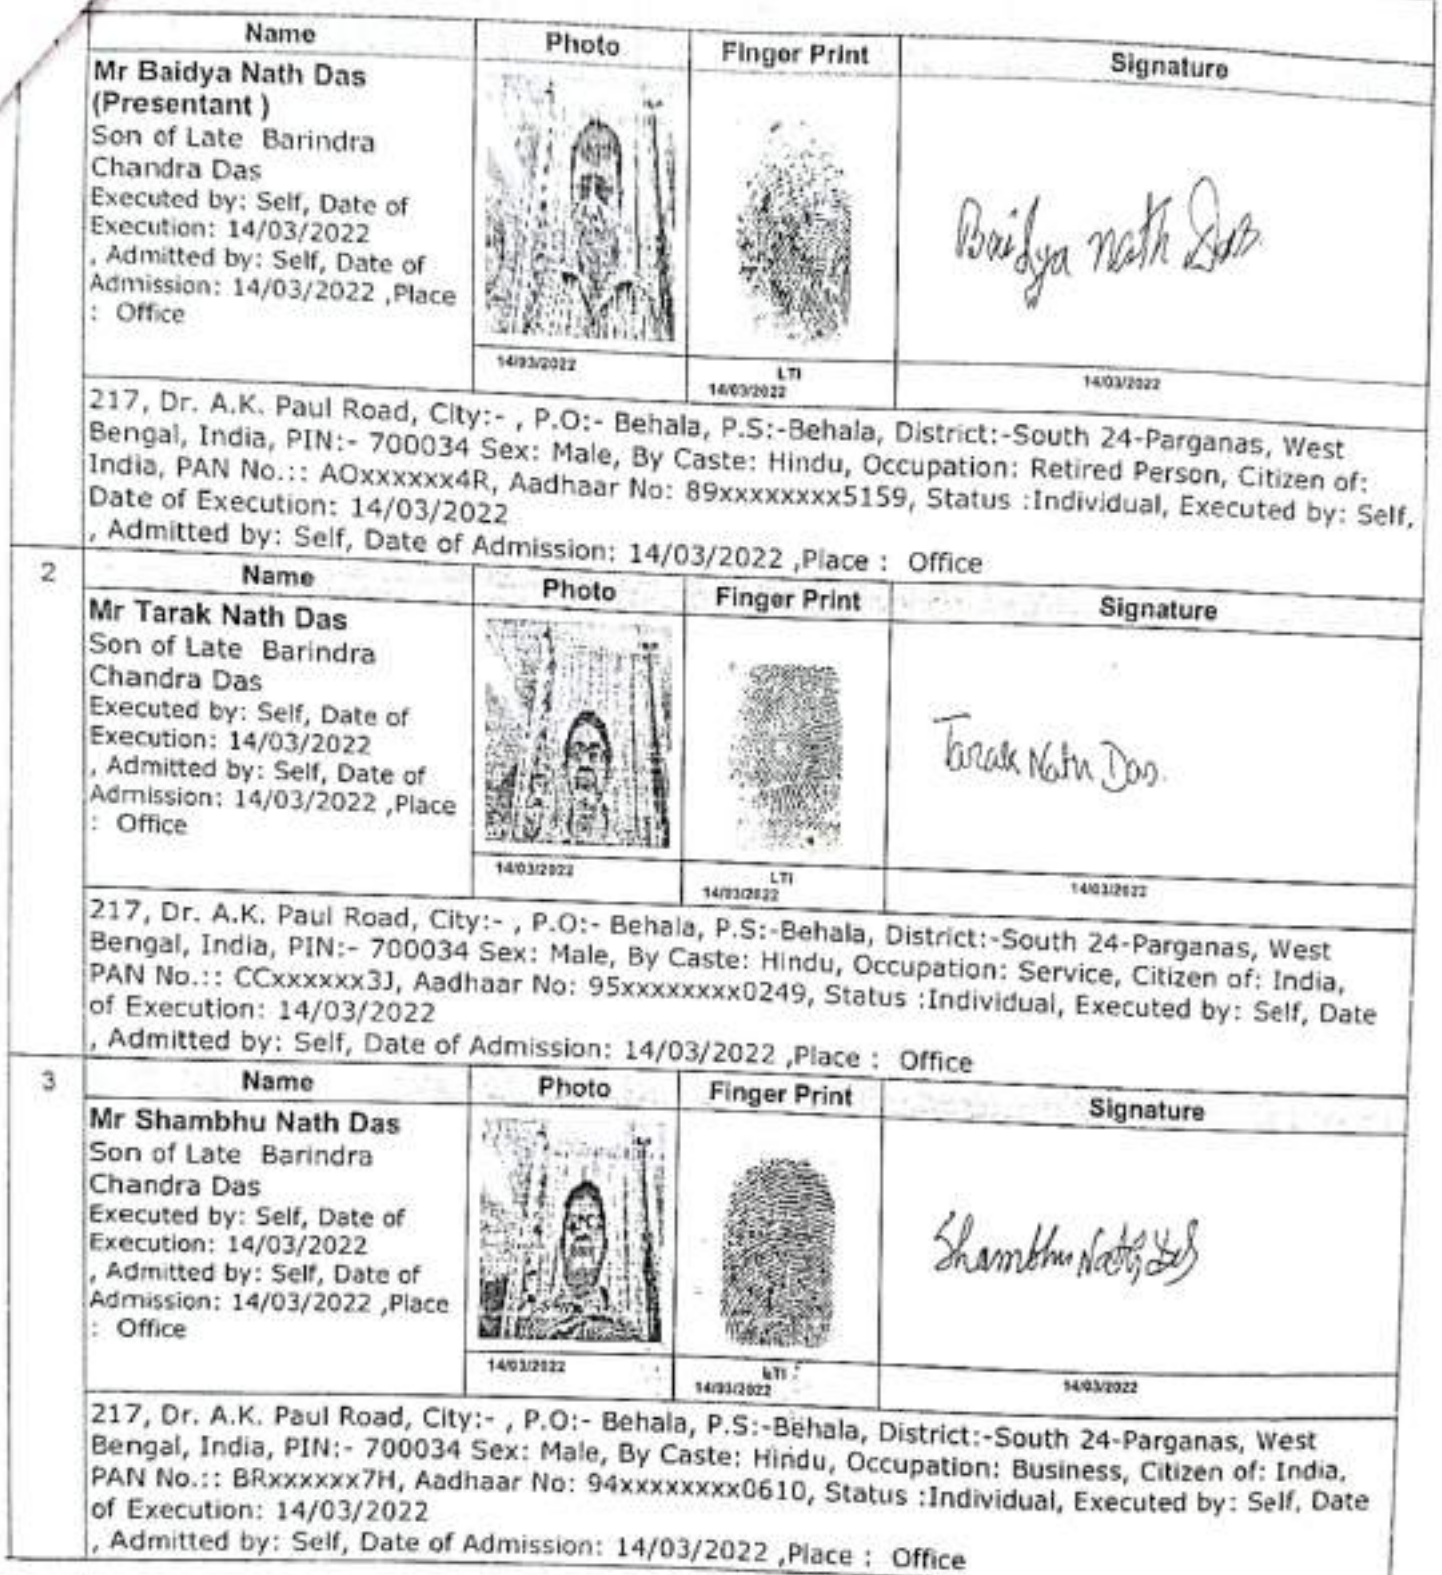 Name Photo Finger Print Signature
Mr Baidya Nath Das
(Presentant )
Son of Late Barindra
Chandra Das
Executed by: Self, Date of
Execution: 14/03/2022
, Admitted by: Self, Date of
Admission: 14/03/2022 ,Place
: Office
Baidya nath Das.
14/03/2022
LTI
14/03/2022
14/03/2022
217, Dr. A.K. Paul Road, City:- , P.O:- Behala, P.S:-Behala, District:-South 24-Parganas, West
Bengal, India, PIN:- 700034 Sex: Male, By Caste: Hindu, Occupation: Retired Person, Citizen of:
India, PAN No.:: AOxxxxxx4R, Aadhaar No: 89xxxxxxxx5159, Status :Individual, Executed by: Self,
Date of Execution: 14/03/2022
, Admitted by: Self, Date of Admission: 14/03/2022 ,Place : Office
2
Name Photo Finger Print Signature
Mr Tarak Nath Das
Son of Late Barindra
Chandra Das
Executed by: Self, Date of
Execution: 14/03/2022
, Admitted by: Self, Date of
Admission: 14/03/2022 ,Place
: Office
Tarak Nath Das.
14/03/2022
LTI
14/03/2022
14/03/2022
217, Dr. A.K. Paul Road, City:- , P.O:- Behala, P.S:-Behala, District:-South 24-Parganas, West
Bengal, India, PIN:- 700034 Sex: Male, By Caste: Hindu, Occupation: Service, Citizen of: India,
PAN No.:: CCxxxxxx3J, Aadhaar No: 95xxxxxxxx0249, Status :Individual, Executed by: Self, Date
of Execution: 14/03/2022
, Admitted by: Self, Date of Admission: 14/03/2022 ,Place : Office
3
Name Photo Finger Print Signature
Mr Shambhu Nath Das
Son of Late Barindra
Chandra Das
Executed by: Self, Date of
Execution: 14/03/2022
, Admitted by: Self, Date of
Admission: 14/03/2022 ,Place
: Office
Shambhu Nath Das
14/03/2022
LTI
14/03/2022
14/03/2022
217, Dr. A.K. Paul Road, City:- , P.O:- Behala, P.S:-Behala, District:-South 24-Parganas, West
Bengal, India, PIN:- 700034 Sex: Male, By Caste: Hindu, Occupation: Business, Citizen of: India,
PAN No.:: BRxxxxxx7H, Aadhaar No: 94xxxxxxxx0610, Status :Individual, Executed by: Self, Date
of Execution: 14/03/2022
, Admitted by: Self, Date of Admission: 14/03/2022 ,Place : Office